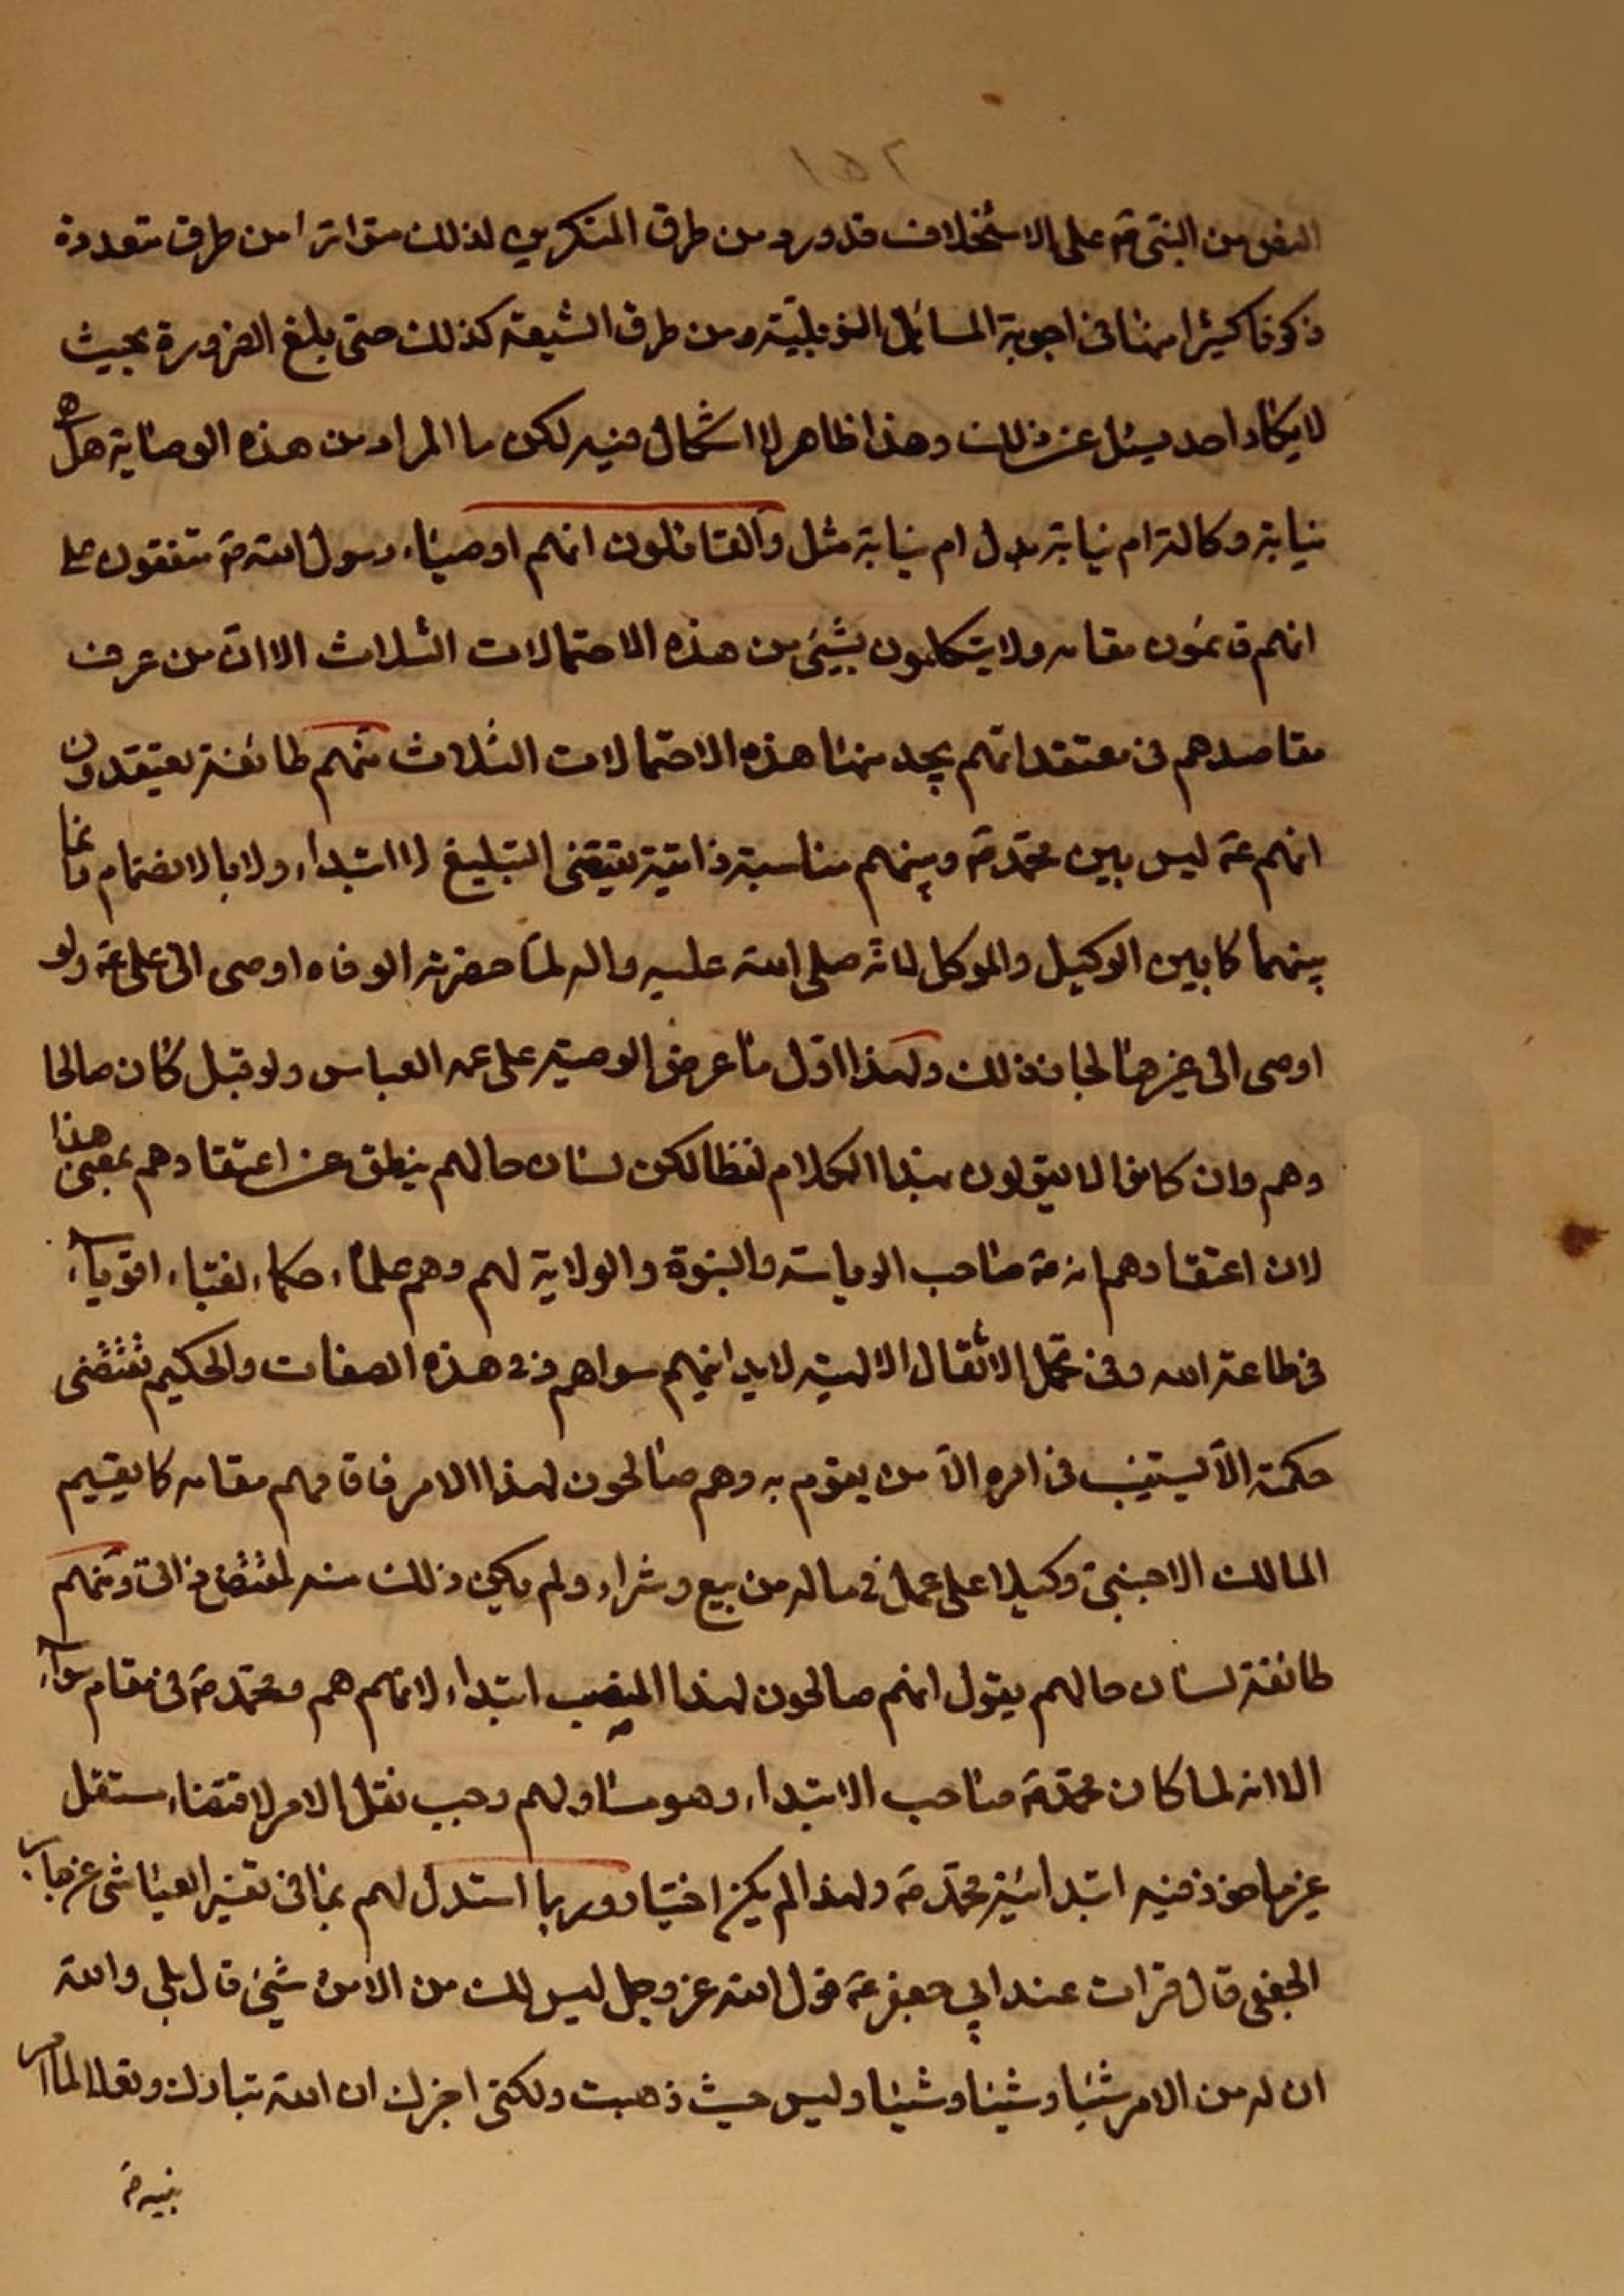 النص من النبي ص على الاستخلاف قد ورد من طرق المنكرين لذلك متواترا من طرق متعددة
ذكرنا كثيرا منها في اجوبة المسائل التوبلية ومن طرق الشيعة كذلك حتى بلغ الضرورة بحيث
لا يكاد احد يسئل عن ذلك وهذا ظاهر لا اشكال فيه لكن ما المراد من هذه الوصاية هل هي
نيابة وكالة ام نيابة بدل ام نيابة مثل والقائلون انهم اوصياء رسول الله ص متفقون على
انهم قائمون مقامه ولا يتكلمون بشيئ من هذه الاحتمالات الثلاث الا ان من عرف
مقاصدهم في معتقداتهم يجد منها هذه الاحتمالات الثلاث فمنهم طائفة يعتقدون
انهم ع ليس بين محمد ص وبينهم مناسبة ذاتية يقتضى التبليغ لا ابتداء ولا بالانضمام وانما
بينهما كما بين الوكيل والموكل لانه صلى الله عليه واله لما حضرته الوفاه اوصى الى على ع ولو
اوصى الى غيرها لجاز ذلك ولهذا اول ما عرض الوصية على عمه العباس ولو قبل كان صالحا
وهم وان كانوا لا يقولون بهذا الكلام لفظا لكن لسان حالهم ينطق عن اعتقادهم بمعنى هذا
لان اعتقادهم انه ص صاحب الرياسة والنبوة والولاية لهم وهم علماء حكماء نقباء اقوياء
في طاعة الله وفي تحمل الاثقال الالهية لا يدانيهم سواهم في هذه الصفات والحكيم تقتضى
حكمته الا يستنيب في امره الا من يقوم به وهم صالحون لهذا الامر فاقامهم مقامه كما يقيم
المالك الاجنبي وكيلا على عمل في ماله من بيع وشراء ولم يكن ذلك منه لمقتض ذاتي ومنهم
طائفة لسان حالهم يقول انهم صالحون لهذا المنصب ابتداء لانهم هم ومحمد ص في مقام سواء
الا انه لما كان محمد ص صاحب الابتداء وهو مساو لهم وجب نقل الامر لاقتضاء مستقل
غير ماخوذ فيه ابتدائية محمد ص ولهذا لم يكن اختيار وربما استدل لهم بما في تفسير العياشى عن جابر
الجعفى قال قرات عند ابي جعفر ع قول الله عز وجل ليس لك من الامر شئ قال بلى والله
ان له من الامر شيئا وشيئا وشيئا وليس حيث ذهبت ولكني اخبرك ان الله تبارك وتعالى لما امر
نبيه ص